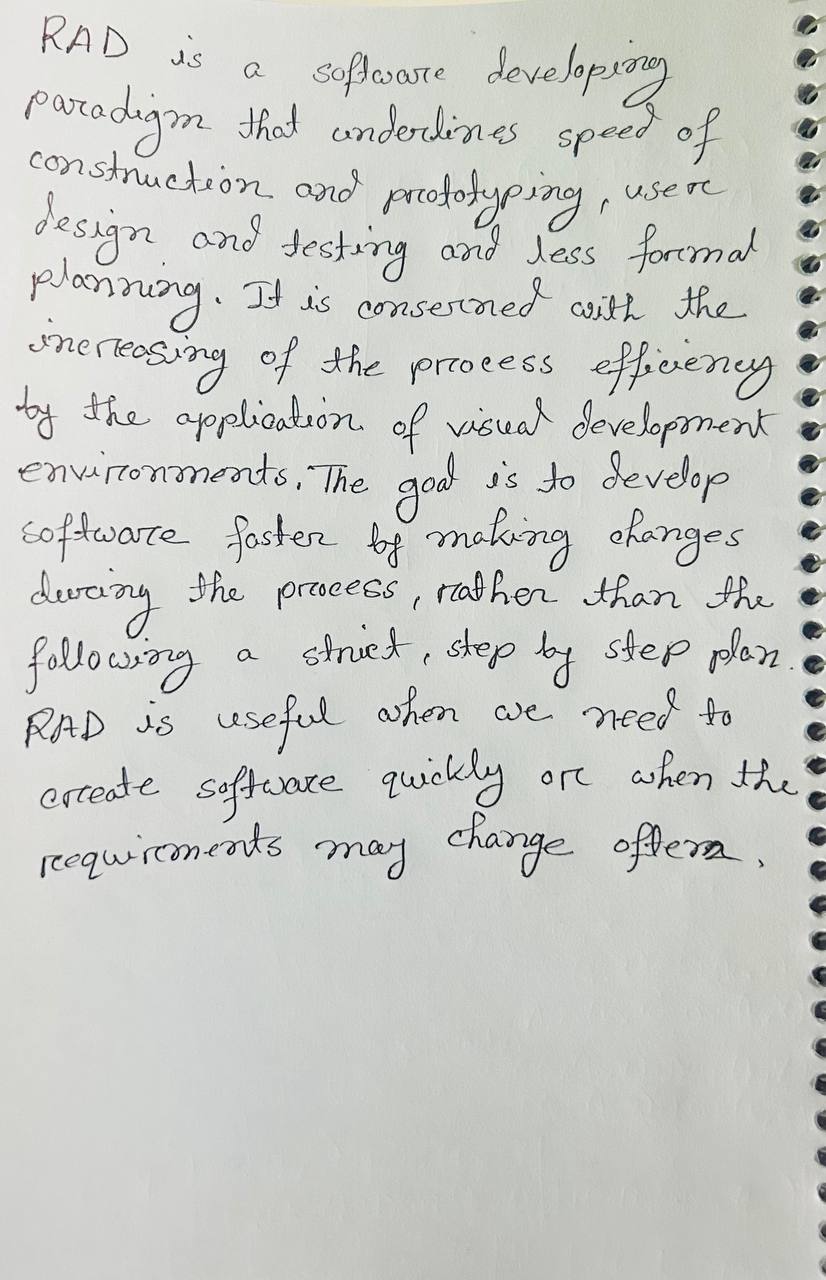 RAD is a software developing
paradigm that underlines speed of
construction and prototyping, user
design and testing and less formal
planning. It is conserned with the
increasing of the process efficiency
by the application of visual development
environments. The goal is to develop
software faster by making changes
during the process, rather than the
following a strict, step by step plan.
RAD is useful when we need to
create software quickly or when the
requirements may change often.